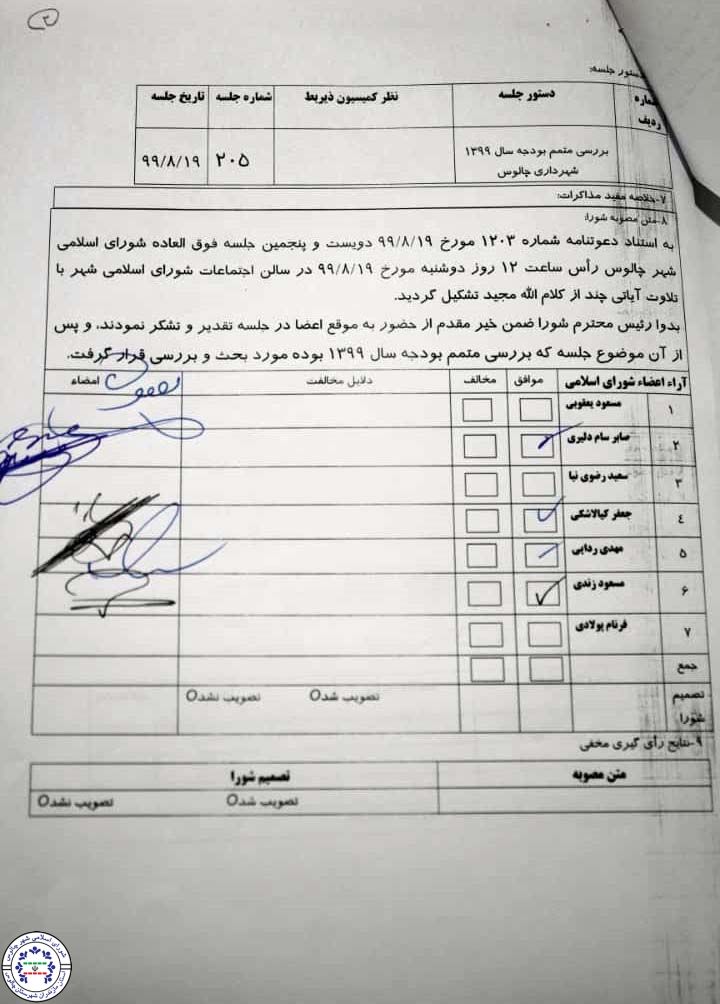 ۲
دستور جلسه:
شماره ردیف	دستور جلسه	نظر کمیسیون ذیربط	شماره جلسه	تاریخ جلسه
بررسی متمم بودجه سال ۱۳۹۹ شهرداری چالوس	۲۰۵	۹۹/۸/۱۹
۷-خلاصه مفید مذاکرات:
۸-متن مصوبه شورا:
به استناد دعوتنامه شماره ۱۲۰۳ مورخ ۹۹/۸/۱۹ دویست و پنجمین جلسه فوق العاده شورای اسلامی
شهر چالوس رأس ساعت ۱۲ روز دوشنبه مورخ ۹۹/۸/۱۹ در سالن اجتماعات شورای اسلامی شهر با
تلاوت آیاتی چند از کلام الله مجید تشکیل گردید.
بدوا رئیس محترم شورا ضمن خیر مقدم از حضور به موقع اعضا در جلسه تقدیر و تشکر نمودند، و پس
از آن موضوع جلسه که بررسی متمم بودجه سال ۱۳۹۹ بوده مورد بحث و بررسی قرار گرفت.
آراء اعضاء شورای اسلامی	موافق	مخالف	دلایل مخالفت	امضاء
۱	مسعود یعقوبی
۲	صابر سام دلیری
۳	سعید رضوی نیا
٤	جعفر کیالاشکی
۵	مهدی ردایی
۶	مسعود زندی
۷	فرنام پولادی
جمع
تصمیم شورا	تصویب شد	تصویب نشد
۹-نتایج رأی گیری مخفی
متن مصوبه	تصمیم شورا
تصویب شد	تصویب نشد
شورای اسلامی شهر چالوس
استان مازندران شهرستان چالوس